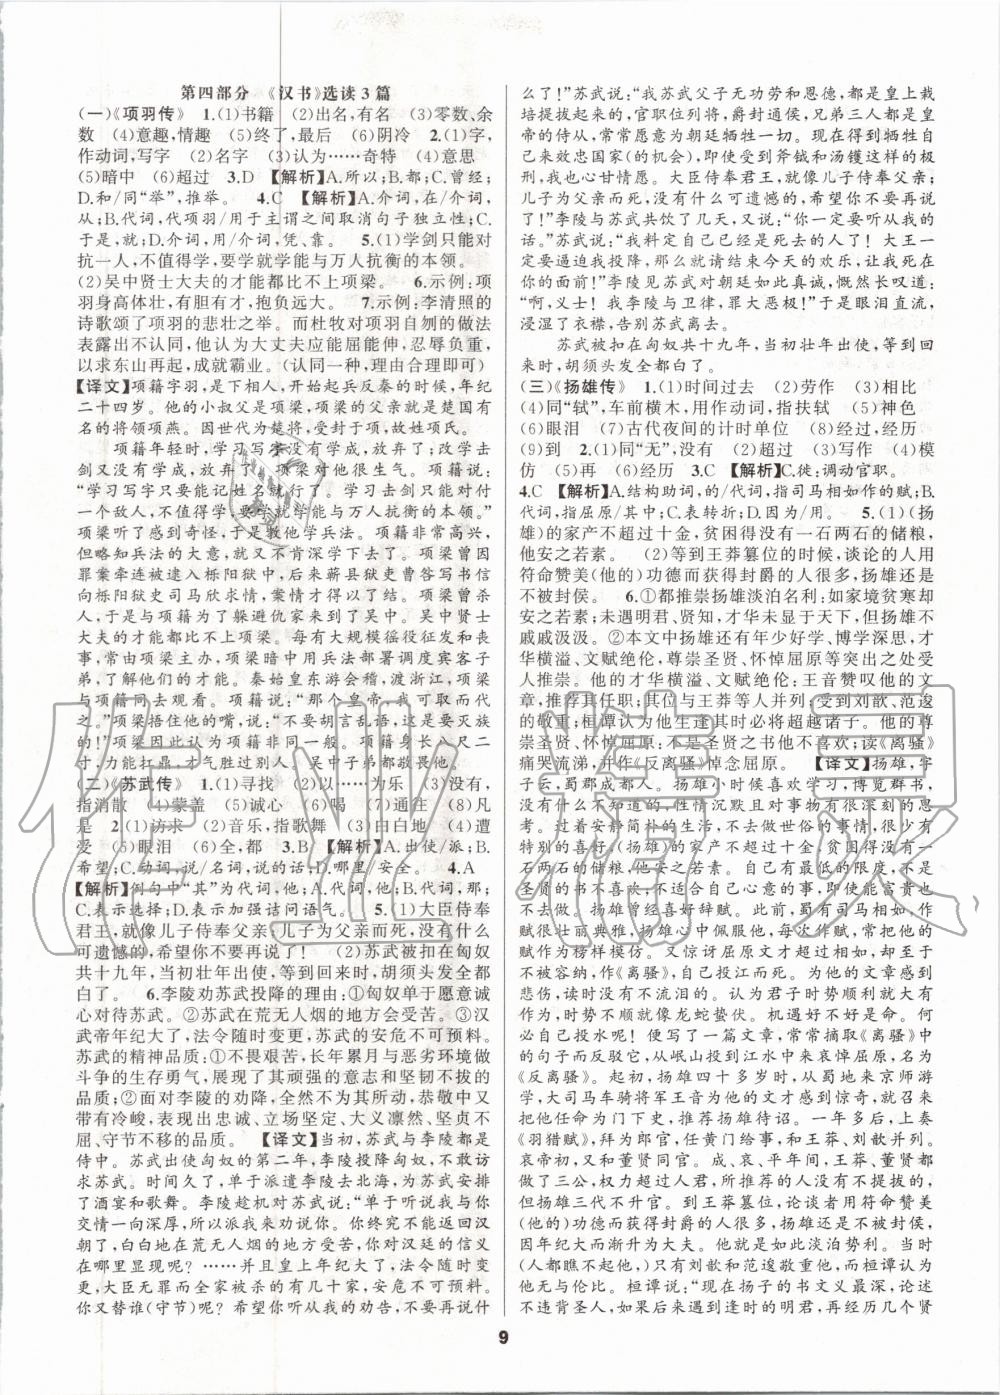 第四部分 《汉书》选读3篇
(一)《项羽传》 1.(1)书籍 (2)出名,有名 (3)零数、余
数 (4)意趣,情趣 (5)终了,最后 (6)阴冷 2.(1)字,
作动词,写字 (2)名字 (3)认为……奇特 (4)意思
(5)暗中 (6)超过 3.D 【解析】A.所以;B.都;C.曾经;
D.和/同“举”,推举。 4.C 【解析】A.介词,在/介词,
从;B.代词,代项羽/用于主谓之间取消句子独立性;C.
于是,就;D.介词,用/介词,凭、靠。 5.(1)学剑只能对
抗一人,不值得学,要学就学能与万人抗衡的本领。
(2)吴中贤士大夫的才能都比不上项梁。 6.示例:项
羽身高体壮,有胆有才,抱负远大。 7.示例:李清照的
诗歌颂了项羽的悲壮之举。而杜牧对项羽自刎的做法
表露出不认同,他认为大丈夫应能屈能伸,忍辱负重,
以求东山再起,成就霸业。(认同一种,理由合理即可)
【译文】项籍字羽,是下相人,开始起兵反秦的时候,年纪
二十四岁。他的小叔父是项梁,项梁的父亲就是楚国有
名的将领项燕。因世代为楚将,受封于项,故姓项氏。
项籍年轻时,学习写字没有学成,放弃了;改学击
剑又没有学成,放弃了。项梁对他很生气。项籍说:
“学习写字只要能记姓名就行了。学习击剑只能对付
一个敌人,不值得学,要学就学能与万人抗衡的本领。”
项梁听了感到奇怪,于是就教他兵法。项籍非常高兴,
但略知兵法的大意,就又不肯深入学下去。项梁曾因
罪案牵连被关进栎阳狱中,后来蕲县狱吏曹咎写书信
向栎阳狱吏司马欣求情,案情才得以了结。项梁曾杀
人,于是与项籍为了躲避仇家来到了吴中。吴中贤士
大夫的才能都比不上项梁。每有大规模徭役征发和丧
事,常由项梁主办,项梁暗中用兵法部署调度宾客子
弟,了解他们的才能。秦始皇东游会稽,渡浙江,项梁
与项籍同去观看。项籍说:“那个皇帝,我可取而代
之。”项梁捂住他的嘴,说:“不要胡言乱语,这是要灭族
的!”项梁因此认为项籍非同一般。项籍身长八尺二
寸,力能扛鼎,才气胜过别人。吴中子弟都畏惧他。
(二)《苏武传》 1.(1)寻找 (2)以……为乐 (3)没有,
指消散 (4)蒙盖 (5)诚心 (6)喝 (7)通往 (8)凡
是 2.(1)访求 (2)音乐,指歌舞 (3)白白地 (4)遭
受 (5)眼泪 (6)全、都 3.B 【解析】A.出使/派;B.
希望;C.动词,说/名词,说的话;D.哪里/安全。 4.A
【解析】例句中“其”为代词,他;A.代词,他;B.代词,那;
C.表示选择;D.表示加强诘问语气。 5.(1)大臣侍奉
君王,就像儿子侍奉父亲,儿子为父亲而死,没有什么
可遗憾的,希望你不要再说了! (2)苏武被扣在匈奴
共十九年,当初壮年出使,等到回来时,胡须头发全都
白了。 6.李陵劝苏武投降的理由:①匈奴单于愿意诚
心对待苏武。②苏武在荒无人烟的地方会受苦。③汉
武帝年纪大了,法令随时变更,苏武的安危不可预料。
苏武的精神品质:①不畏艰苦,长年累月与恶劣环境做
斗争的生存勇气,展现了其顽强的意志和坚韧不拔的
品质;②面对李陵的劝降,全然不为其所动,恭敬中又
带有冷峻,表现出忠诚、立场坚定、大义凛然、坚贞不
屈、守节不移的品质。 【译文】当初,苏武与李陵都是
侍中。苏武出使匈奴的第二年,李陵投降匈奴,不敢访
求苏武。时间久了,单于派遣李陵去北海,为苏武安排
了酒宴和歌舞。李陵趁机对苏武说:“单于听说我与你
交情一向深厚,所以派我来劝说你。你终究不能返回汉
朝了,白白地在荒无人烟的地方受苦,你对汉廷的信义
在哪里显现呢?……并且皇上年纪大了,法令随时变
更,大臣无罪而全家被杀的有几十家,安危不可预料。
你又替谁(守节)呢?希望你听从我的劝告,不要再说什
么了!”苏武说:“我苏武父子无功劳和恩德,都是皇上栽
培提拔起来的,官职位列将,爵封通侯,兄弟三人都是皇
帝的侍从,常常愿意为朝廷牺牲一切。现在得到牺牲自
己来效忠国家(的机会),即使受斧钺和汤镬这样的极
刑,我也心甘情愿。大臣侍奉君王,就像儿子侍奉父亲;
儿子为父亲而死,没有什么可遗憾的,希望你不要再说
了!”李陵与苏武共饮了几天,又说:“你一定要听从我的
话。”苏武说:“我料定自己已经是死去的人了!大王一
定要逼迫我投降,那么就请结束今天的欢乐,让我死在
你的面前!”李陵见苏武对朝廷如此真诚,慨然长叹道:
“啊,义士!我李陵与卫律,罪大恶极!”于是眼泪直流,
浸湿了衣襟,告别苏武离去。
苏武被扣在匈奴共十九年,当初壮年出使,等到回
来时,胡须头发全都白了。
(三)《扬雄传》 1.(1)时间过去 (2)劳作 (3)相比
(4)同“轼”,车前横木,用作动词,指扶轼 (5)神色
(6)眼泪 (7)古代夜间的计时单位 (8)经过,经历
(9)到 2.(1)同“无”,没有 (2)超过 (3)写作 (4)模
仿 (5)再 (6)经历 3.C 【解析】C.徙:调动官职。
4.C 【解析】A.结构助词,的/代词,指司马相如作的赋;B.
代词,指屈原/其中;C.表转折;D.因为/用。 5.(1)(扬
雄)的家产不超过十金,贫困得没有一石两石的储粮,
他安之若素。 (2)等到王莽篡位的时候,谈论的人用
符命赞美(他的)功德而获得封爵的人很多,扬雄还是
不被封侯。 6.①都推崇扬雄淡泊名利:如家境贫寒却
安之若素;未遇明君、贤知,才华未显于天下,但扬雄不
戚戚汲汲。②本文中扬雄还有年少好学、博学深思,才
华横溢、文赋绝伦,尊崇圣贤、怀悼屈原等突出之处受
人推崇。他的才华横溢、文赋绝伦:王音赞叹他的
文章,推荐其任职;其与王莽等人并列;受到刘歆、范逡
的敬重;桓谭认为他生逢其时必将超越诸子。他的尊
崇圣贤、怀悼屈原:不是圣贤之书他不喜欢;读《离骚》
痛哭流涕,并作《反离骚》悼念屈原。 【译文】扬雄,字
子云,蜀郡成都人。扬雄小时候喜欢学习,博览群书,
没有什么不知道的。性情沉默且对事物有很深刻的思
考。过着安静简朴的生活,不去做世俗的事情,很少有
嗜好,(扬雄)的家产不超过十金,贫困得没有一石两
石的储粮,他安之若素。自己有最低的限度,不是
圣贤的书不喜欢;不合自己心意的事,即使能富贵也
不去做。扬雄曾经喜好辞赋。此前,蜀有司马相如,作
赋很壮丽典雅,扬雄心中佩服他,每次作赋,常把他的
赋作为榜样模仿。又惊讶屈原文才超过相如,却
不被容纳,作《离骚》,自己投江而死。为他的文章感到
悲伤,读时没有不流泪的。认为君子时势顺利就大有
作为,时势不顺就像龙蛇蛰伏。机遇好不好是命。何
必自己投水呢!便写了一篇文章,常常摘取《离骚》中
的句子而反驳它,从岷山投到江水中来哀悼屈原,名为
《反离骚》。起初,扬雄四十多岁,从蜀地来京师游
学,大司马车骑将军王音为他的文才感到惊奇,就召来
任命他为门下史,推荐扬雄待诏。一年多后,上奏
《羽猎赋》,拜为郎官,任黄门给事,和王莽、刘歆并列。
哀帝初,又和董贤同官。成、哀、平年间,王莽、董贤都
做了三公,权力超过人君,所推荐的人没有不提拔的,
但扬雄三代不升官。到王莽篡位,论谈者用符命赞美
(他的)功德而获得封爵的人很多,扬雄还是不被封侯,
因年纪大了而渐升为大夫。他就是如此淡泊势利。当时
(人都瞧不起他),只有刘歆和范逡敬重他,而桓谭认为
他无与伦比。桓谭说:“现在扬子的书文义最深,论述
不违背圣人,如果或者遇到逢时的明君,再经历几个贤
9
作业精灵